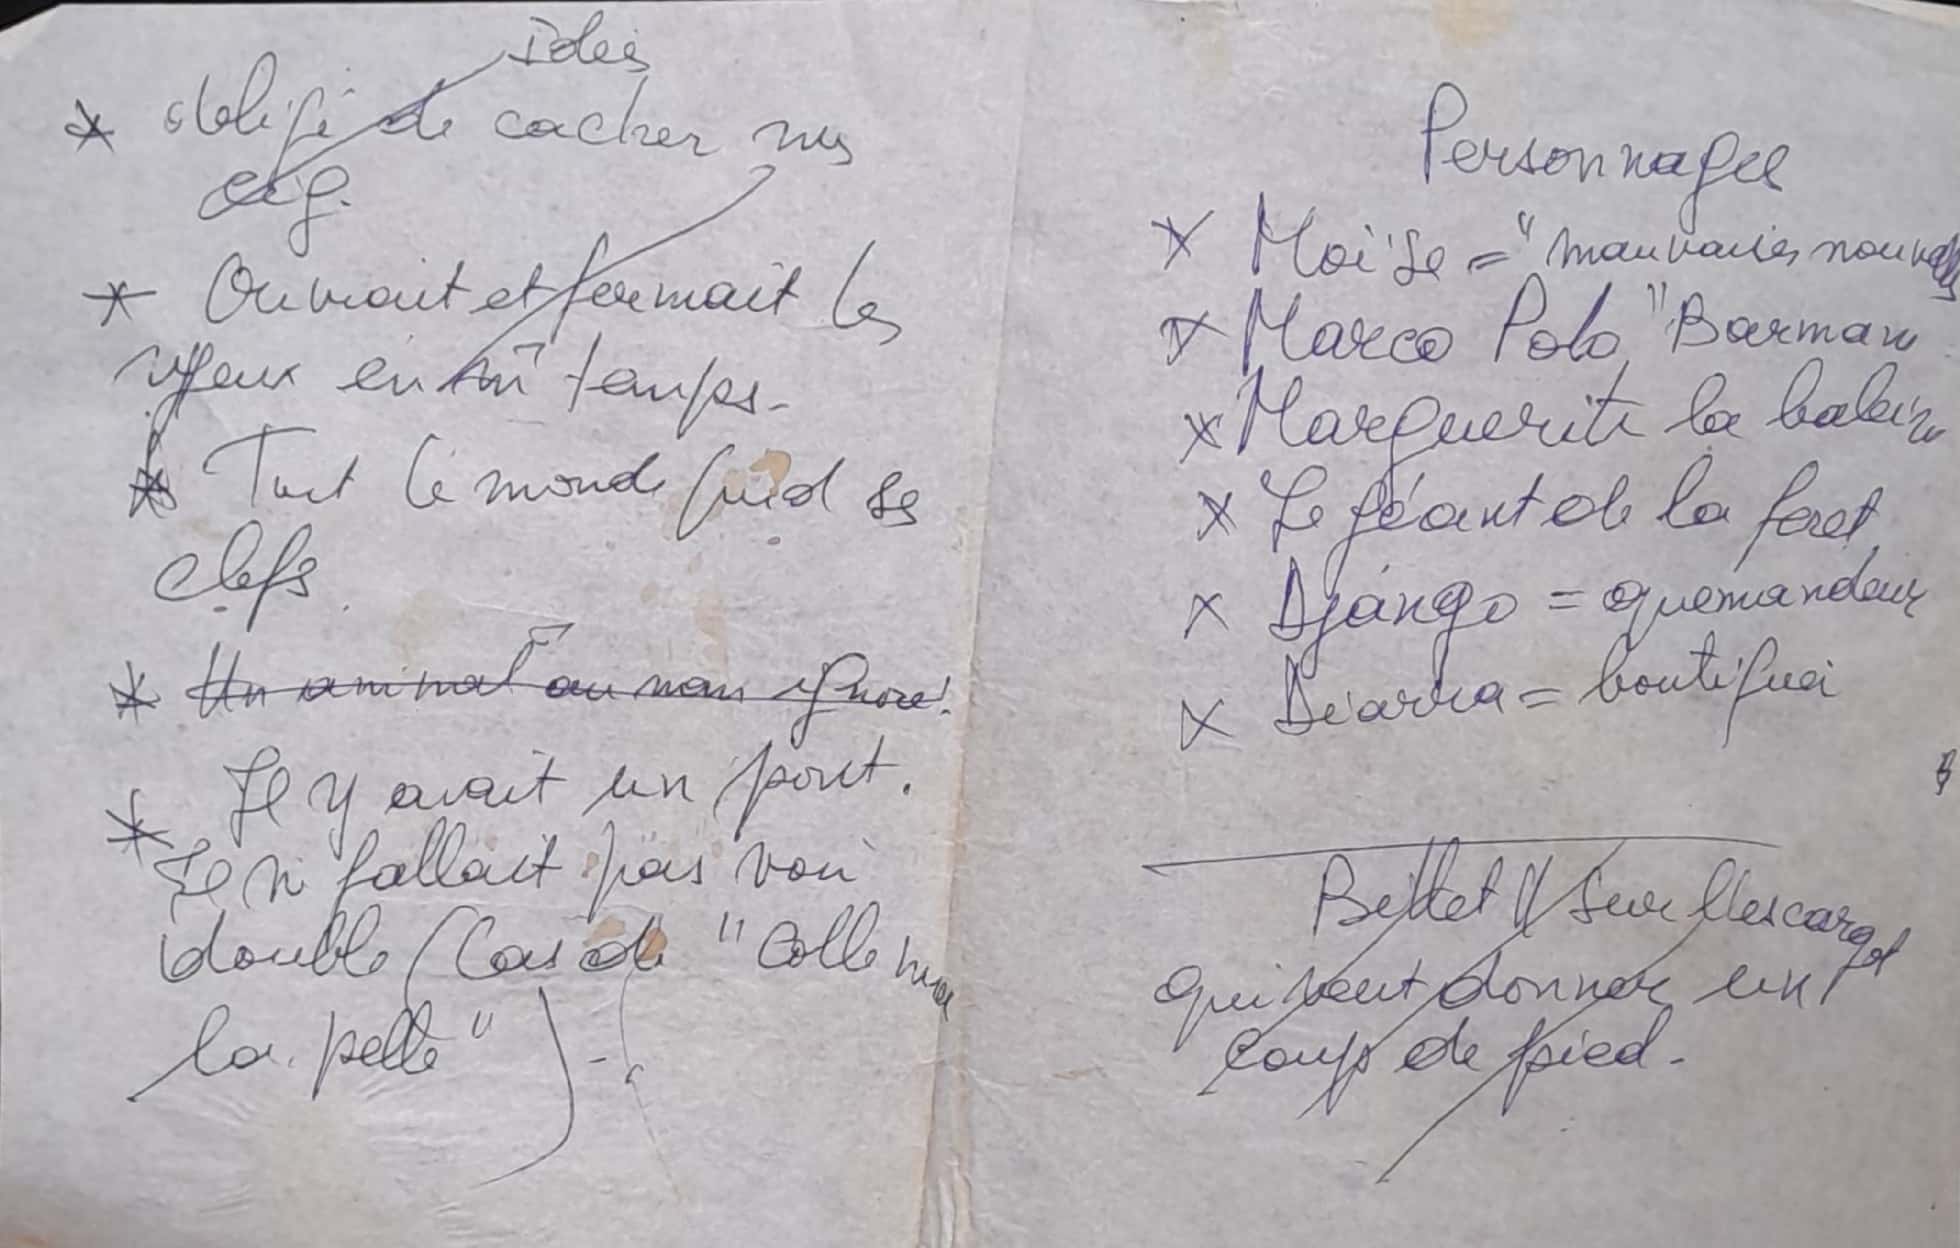 Idées
* obligé de cacher nos
cig.
* Ouvrait et fermait les
yeux en m̄ temps.
* Tout le monde perd ses
clefs.
* Un animal au nom ignoré.
Il y avait un pont.
* Il ne fallait pas voir
double (Cas de "Colle moi
la pelle") -
Personnages
* Moïse = "mauvaises nouvelles
* Marco Polo "Barman
* Marguerite la baleine
* Le géant de la foret
* Django = quemandeur
* Diarra = boutiquei
Billet sur l'escargot
qui veut donner un
coup de pied.